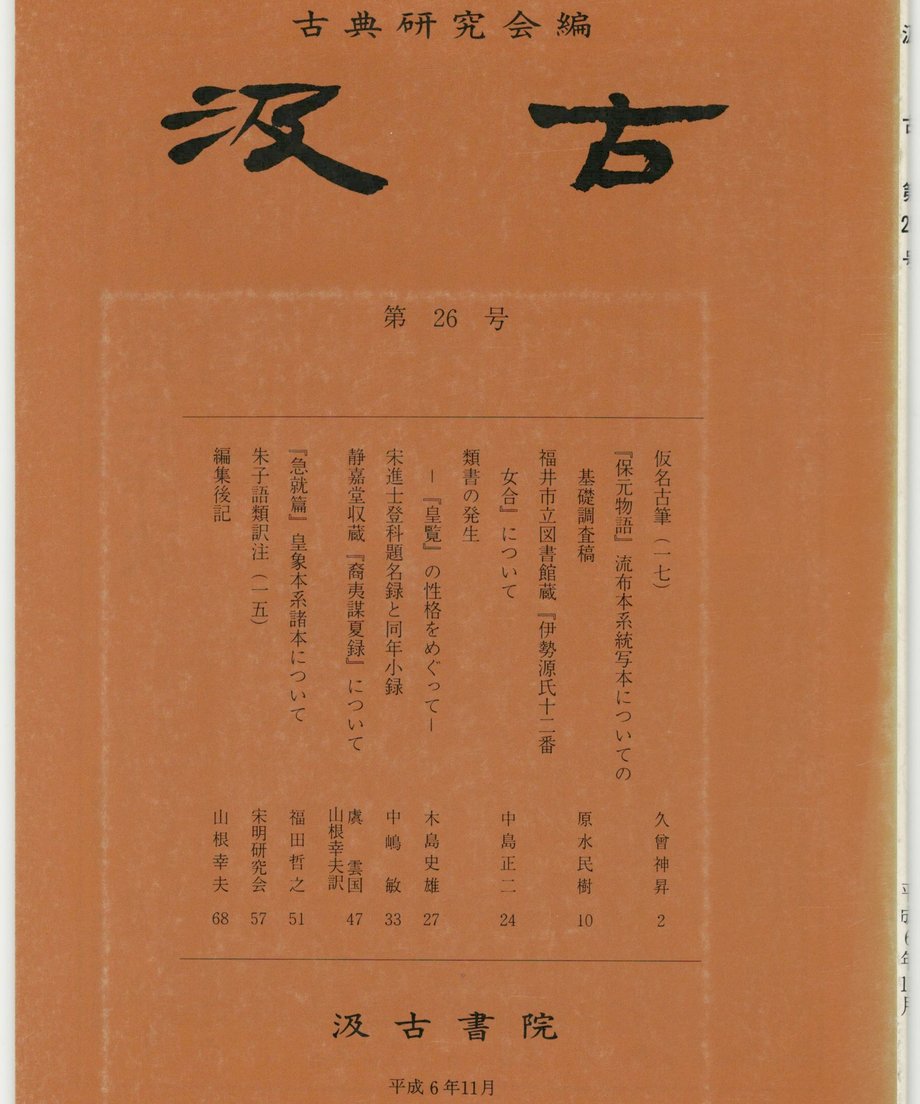 古典研究会編
汲古
第 26 号
仮名古筆（一七） 久曾神昇 2
『保元物語』流布本系統写本についての
基礎調査稿 原水民樹 10
福井市立図書館蔵『伊勢源氏十二番
女合』について 中島正二 24
類書の発生
―『皇覧』の性格をめぐって― 木島史雄 27
宋進士登科題名録と同年小録 中嶋 敏 33
静嘉堂収蔵『裔夷謀夏録』について 虞 雲国 47
山根幸夫訳
『急就篇』皇象本系諸本について 福田哲之 51
朱子語類訳注（一五） 宋明研究会 57
編集後記 山根幸夫 68
汲古書院
平成6年11月